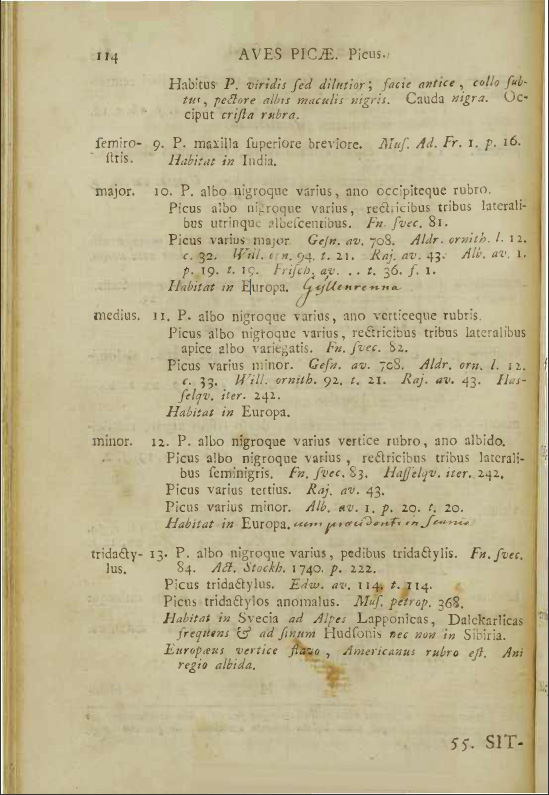 114 AVES PICÆ. Picus.
Habitus P. viridis ſed dilutior; facie antice, collo ſub-
tus, pectore albis maculis nigris. Cauda nigra. Oc-
ciput criſta rubra.
ſemiro- 9. P. maxilla ſuperiore breviore. Muſ. Ad. Fr. 1. p. 16.
ſtris. Habitat in India.
major. 10. P. albo nigroque varius, ano occipiteque rubro.
Picus albo nigroque varius, rectricibus tribus laterali-
bus utrinque albeſcentibus. Fn. ſvec. 81.
Picus varius major. Geſn. av. 708. Aldr. ornith. l. 12.
c. 32. Will. orn. 94. t. 21. Raj. av. 43. Alb. av. 1.
p. 19. t. 19. Friſch. av. .. t. 36. f. 1.
Habitat in Europa. Gyllenrenna
medius. 11. P. albo nigroque varius, ano verticeque rubris.
Picus albo nigroque varius, rectricibus tribus lateralibus
apice albo variegatis. Fn. ſvec. 82.
Picus varius minor. Geſn. av. 708. Aldr. orn. l. 12.
c. 33. Will. ornith. 92. t. 21. Raj. av. 43. Has-
ſelqv. iter. 242.
Habitat in Europa.
minor. 12. P. albo nigroque varius vertice rubro, ano albido.
Picus albo nigroque varius, rectricibus tribus laterali-
bus ſeminigris. Fn. ſvec. 83. Haſſelqv. iter. 242.
Picus varius tertius. Raj. av. 43.
Picus varius minor. Alb. av. 1. p. 20. t. 20.
Habitat in Europa. cum præcedenti in Scania
tridacty- 13. P. albo nigroque varius, pedibus tridactylis. Fn. ſvec.
lus. 84. Act. Stockh. 1740. p. 222.
Picus tridactylus. Edw. av. 114. t. 114.
Picus tridactylos anomalus. Muſ. petrop. 368.
Habitat in Svecia ad Alpes Lapponicas, Dalekarlicas
frequens & ad ſinum Hudſonis nec non in Sibiria.
Europæus vertice flavo, Americanus rubro eſt. Ani
regio albida.
55. SIT-